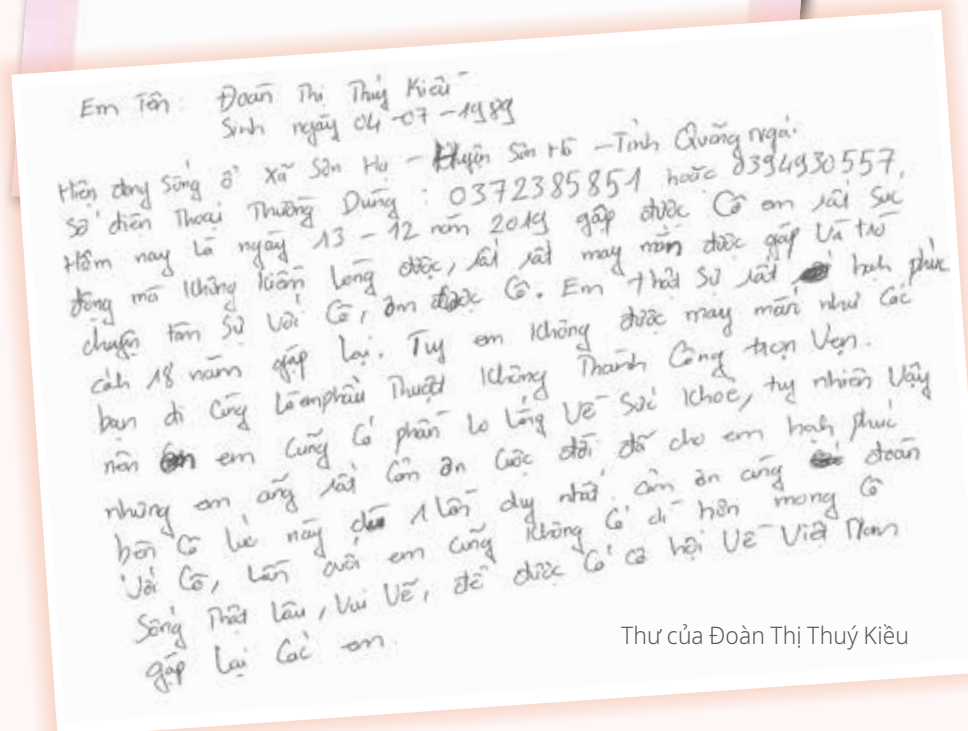 Em Tên: Đoàn Thị Thuý Kiều
Sinh ngày 04-07-1989
Hiện đang Sống ở Xã Sơn Hạ - Huyện Sơn Hà - Tỉnh Quãng ngải.
Số điện Thoại Thường Dùng : 0372385851 hoặc 0394930557.
Hôm nay Là ngày 13-12 năm 2019 gặp được Cô em rất Xúc
động mà Không kiềm Lòng được, rất rất may mắn được gặp Và trò
chuyện tâm Sự Với Cô, ôm được Cô. Em thật Sự rất hạnh phúc
cách 18 năm gặp lại. Tuy em Không được may mắn như Các
bạn đi Cùng Làm phẩu Thuật Không Thành Công trọn Vẹn.
nên em Cũng Có phần Lo Lắng Về Sức Khoẻ, tuy nhiên Vậy
nhưng em cũng rất Cảm ơn Cuộc đời đã cho em hạnh phúc
bên Cô lúc này 1 lần duy nhất. Cảm ơn cùng đoàn
Với Cô, Lần cuối em cũng Không Có gì hơn mong Cô
Sống Thật Lâu, Vui Vẽ, để được Có cơ hội Về Việt Nam
gặp lại Các em.
Thư của Đoàn Thị Thuý Kiều